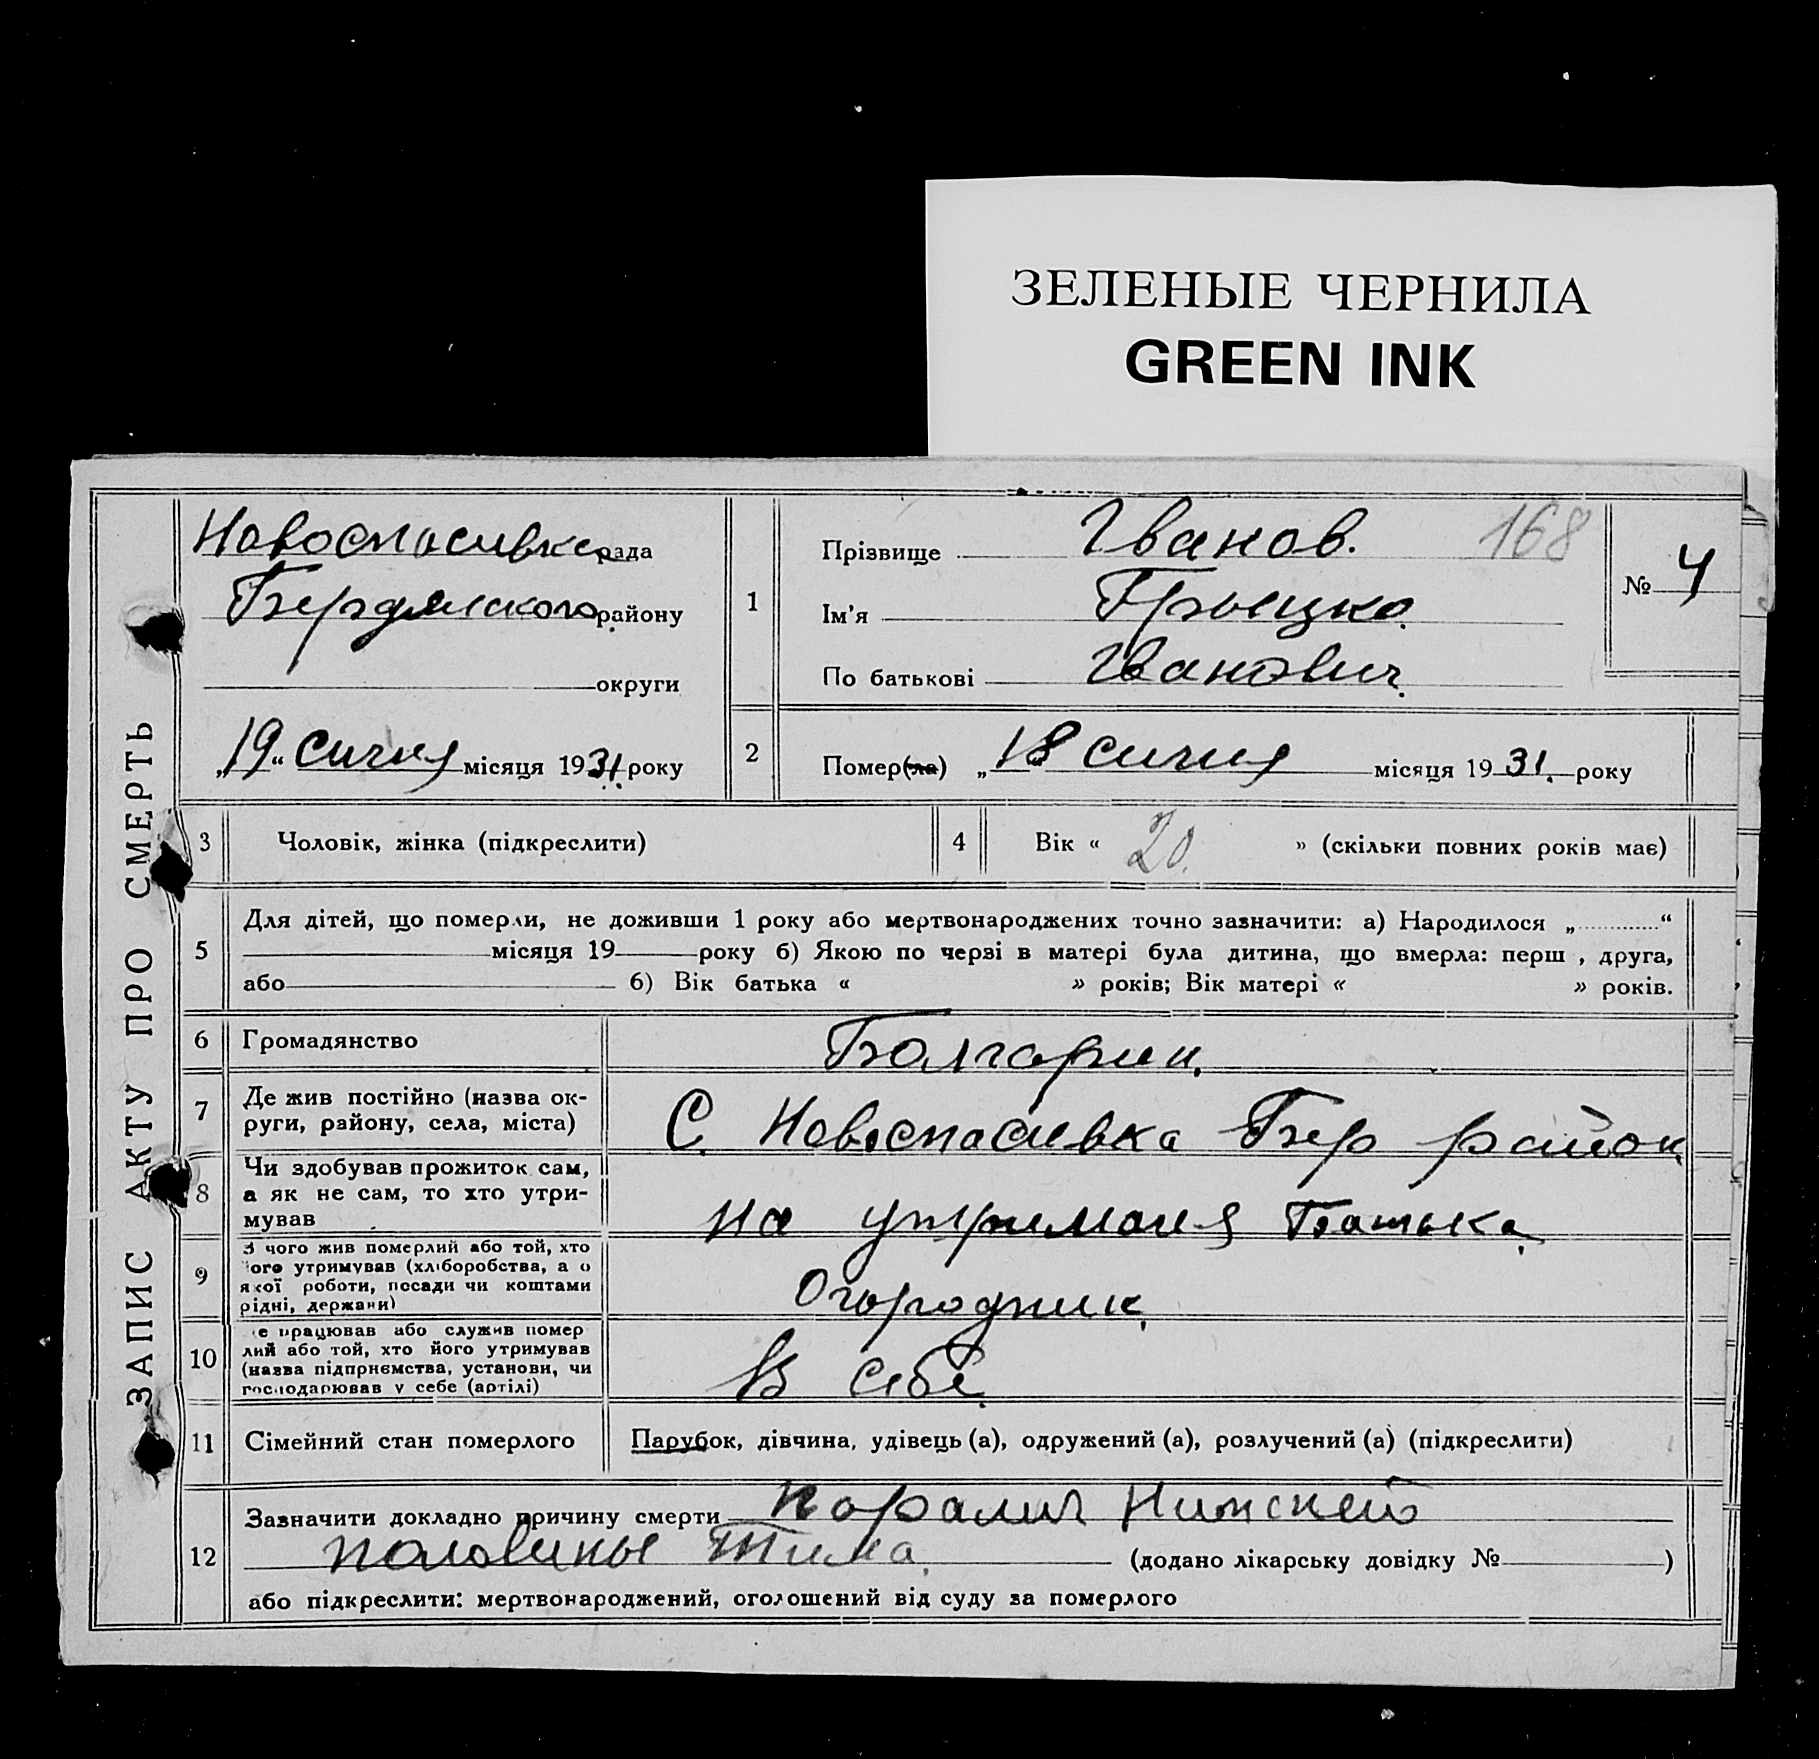 ЗЕЛЕНЫЕ ЧЕРНИЛА
GREEN INK
ЗАПИС АКТУ ПРО СМЕРТЬ
Новоспасивка рада
Бердянского району
округи
„19“ сичня місяця 1931. року
1
Прізвище Іванов. 168
Ім'я Грыцко.
По батькові Іванович.
№ 4
2
Помер(ла) „18 сичня місяця 1931. року
3 Чоловік, жінка (підкреслити)
4 Вік « 20. » (скільки повних років має)
5 Для дітей, що померли, не доживши 1 року або мертвонароджених точно зазначити: а) Народилося „ “
місяця 19 року б) Якою по черзі в матері була дитина, що вмерла: перш , друга,
або б) Вік батька « » років; Вік матері « » років.
6 Громадянство Болгарин.
7 Де жив постійно (назва ок-
руги, району, села, міста)
С. Новоспасивка Бер район.
8 Чи здобував прожиток сам,
а як не сам, то хто утри-
мував
на утриманя Батька.
9 З чого жив померлий або той, хто
його утримував (хліборобства, а о
якої роботи, посади чи коштами
рідні, держави)
Огородник.
10 е працював або служив помер
лий або той, хто його утримував
(назва підприємства, установи, чи
господарював у себе (артілі)
В себе.
11 Сімейний стан померлого Парубок, дівчина, удівець (а), одружений (а), розлучений (а) (підкреслити)
12 Зазначити докладно причину смерти паралич Нижней
половины Тила. (додано лікарську довідку № )
або підкреслити: мертвонароджений, оголошений від суду за померлого